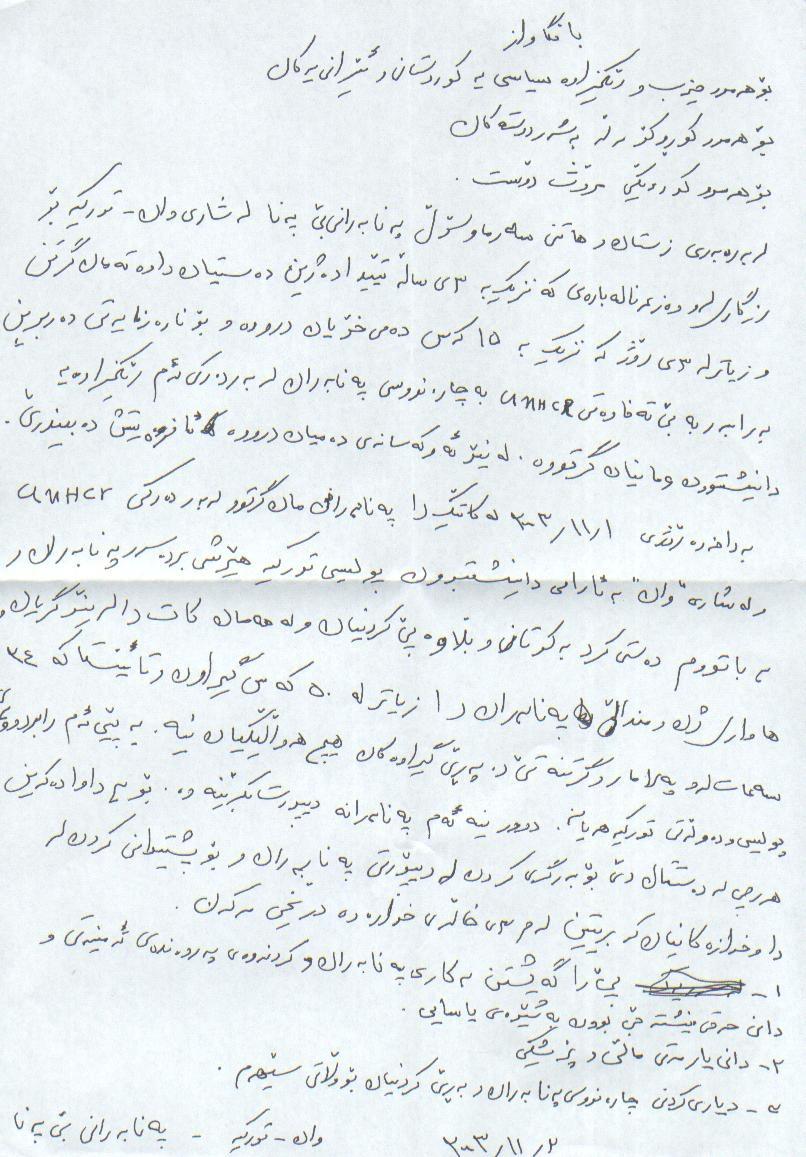 بانگاواز
بۆ هەموو حیزب و رێکخراوە سیاسی یە کوردستانی و ئێرانی یەکان
بۆ هەموو کۆڕ و کۆمەڵە بەشەردۆستەکان
بۆ هەموو کوردێکی مرۆڤ دۆست .
لە بەرەبەری زستان و هاتنی سەرما و سۆڵ پەنابەرانی بێ پەنا لە شاری وان - تورکیە بۆ
رزگاری لەو دەرناڵەبارەی کە نزیک بە ٣ی ساڵە تێیدا دەژین دەستیان داوەتە مان گرتن
و زیاتر لە ٣ی رۆژ کە نزیک بە ١٥ کەس دەمی خۆیان دروو ە و بۆ نارەزایەتی دەربڕین
بەرابەر بە بێ تەفاوەتی UNHCR بە چارەنووسی پەنابەران لە بەردەرکی ئەم رێکخراوەیە
دانیشتوون و مانیان گرتووە . لە نێو ئەو کەسانەی دەمیان درووە ئافرەتیش دەبینرێ .
بەداخەوە رۆژی ٢٠٠٣/١١/١ لە کاتێک دا پەنابەرانی مان گرتوو لە بەردەرکی UNHCR
و لە شارە "وان" بە ئارامی دانیشتبوون پۆلیسی تورکیە هێرشی بردە سەر پەنابەران و
بە باتووم دەستی کرد بە کوتان و بڵاوە پێ کردنیان و لە هەمان کات دا لە نێو گریان و
هاواری ژن و منداڵی پەنابەران دا زیاتر لە ٥٠ کەس گیراون و تا ئێستا کە ٣٤
سەعات لەو پەلامار و گرتنە تێ دەپەڕێ گیراوەکان هیچ هەواڵێکیان نیە . بە پێی ئەم رابردووەی
پۆلیس و دەوڵەتی تورکیە هەیانە . دوور نیە ئەم پەنابەرانە دیپۆرت بکرێنە وە . بۆیە داوا دەکەین
هەرچی لە دەستتان دێ بۆ بەرگری کردن لە دیپۆرتی پەنابەران و بۆ پشتیوانی کردن لە
داوخوازەکانیان کە بریتین لەم ٣ی خاڵەی خوارەوە درێغی مەکەن .
١- پێ راگەیشتن بە کاری پەنابەران و کردنەوەی پەروەندەی ئەمنیەتی و
دانی حەقی نیشتەجێ بوون بە شێوەی یاسایی .
٢- دانی یارمەتی ماڵی و پزیشکی
٣- دیاری کردنی چارەنووسی پەنابەران و بەڕێ کردنیان بۆ وڵاتی سێهەم .
٢٠٠٣/١١/٢ وان - تورکیە - پەنابەرانی بێ پەنا